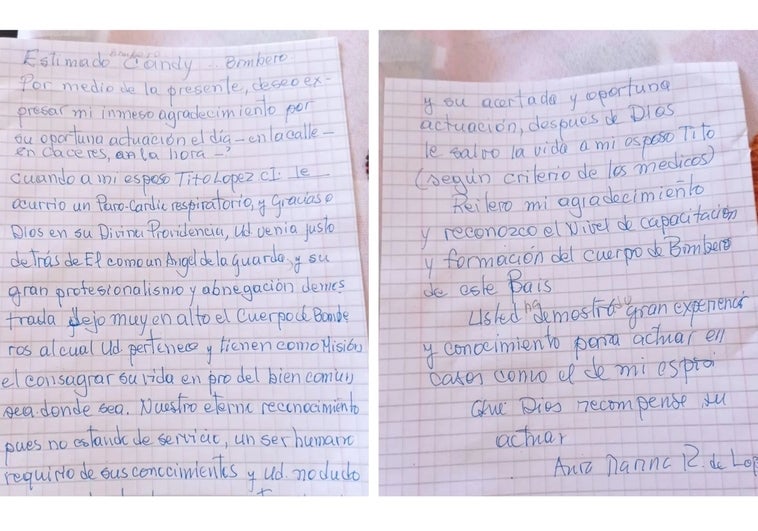 Bombero
Estimado Candy .. Bombero.
Por medio de la presente, deseo ex-
presar mi inmeso agradecimiento por
su oportuna actuación el día - en la calle -
en caceres, an la hora -
cuando a mi esposo Tito Lopez CI. le
acurrio un Paro-Cardic respiratorio, y Gracias a
Dios en su Divina Providencia, Ud venia justo
detrás de El como un Angel de la guarda, y su
gran profesionalismo y abnegación demos
trada dejo muy en alto el Cuerpo de Bombe
ros al cual Ud. pertenece y tienen como Misión
el consagrar su vida en pro del bien comun
sea donde sea. Nuestro eterno reconocimiento
pues no estando de servicio, un ser humano
requirio de sus conocimientos y Ud. no dudo
y su acertada y oportuna
actuación, despues de Dios
le salvo la vida a mi esposo Tito
(según criterio de los medicos)
Reitero mi agradecimiento
y reconozco el Nivel de capacitación
y formación del cuerpo de Bombero
de este Pais
Usted demostro gran experiencia
y conocimiento para actuar en
casos como el de mi
Que Dios recompense su
actuar
Marina R. de Lop